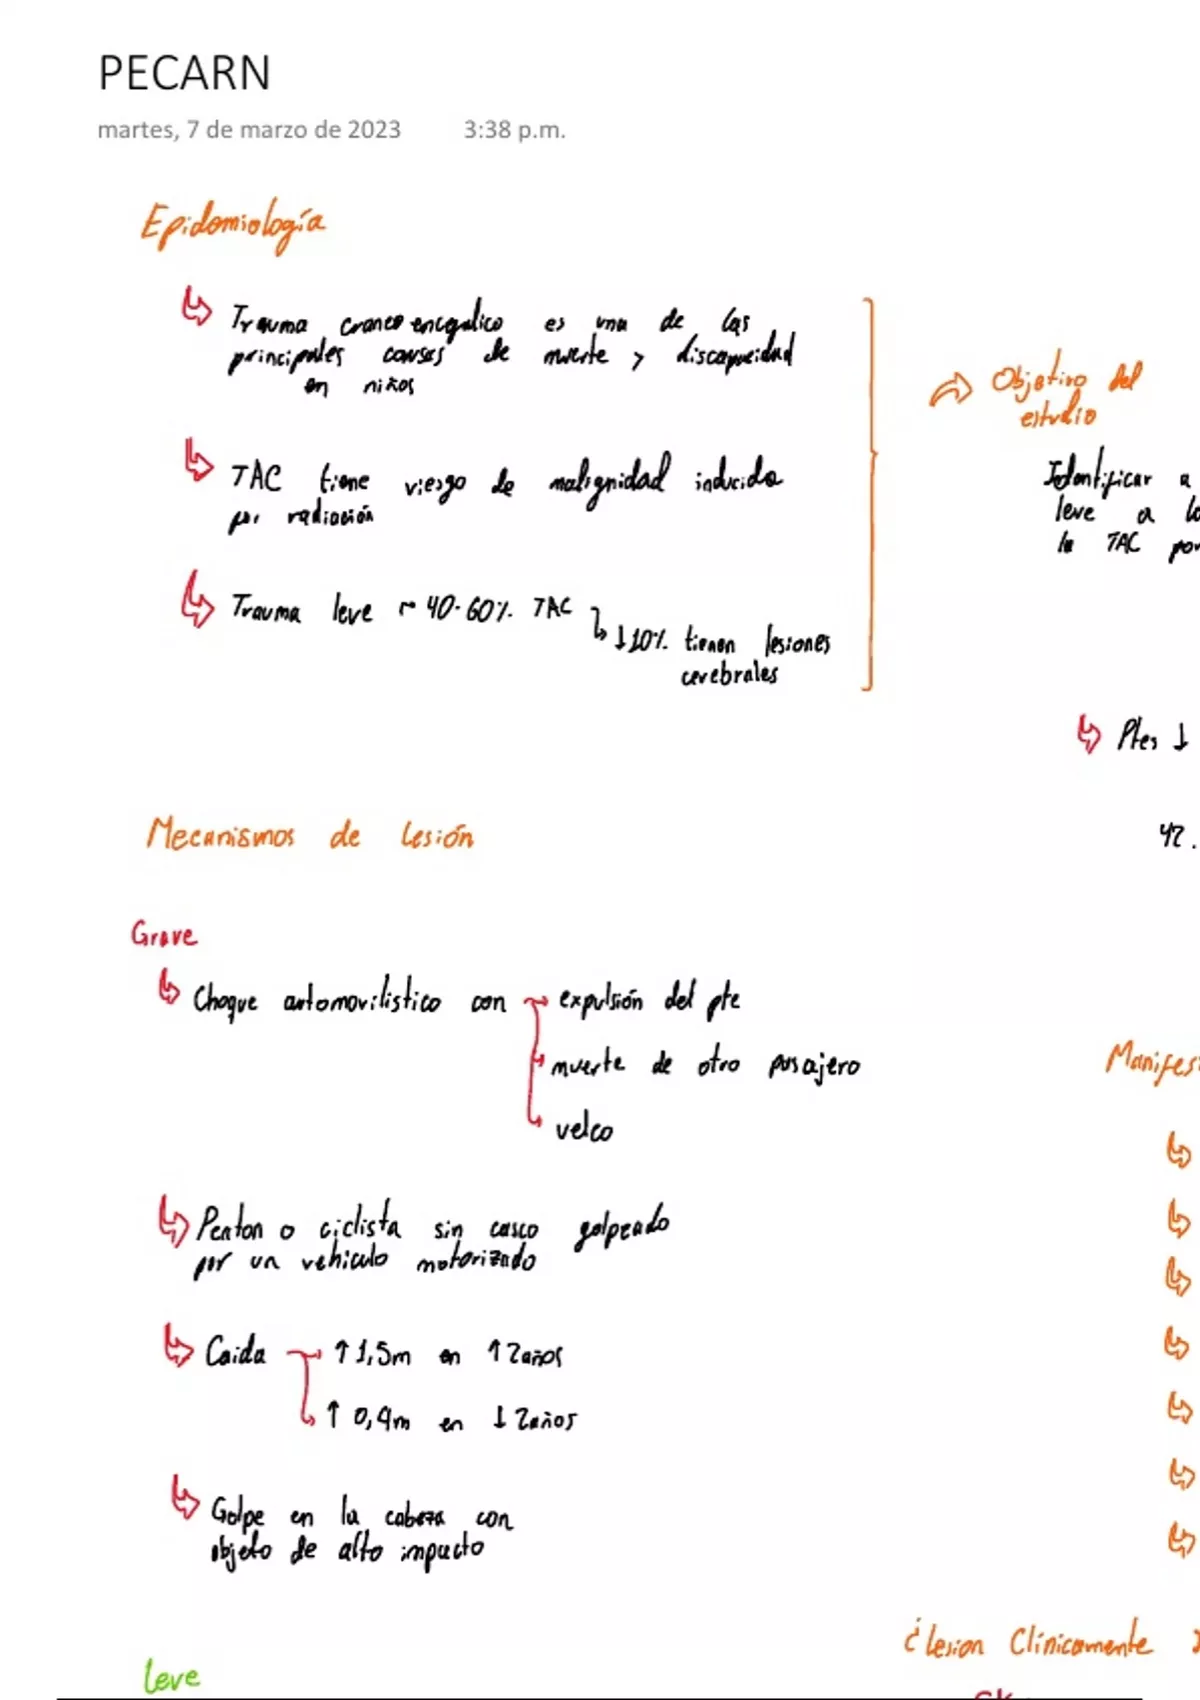 PECARN
martes, 7 de marzo de 2023 3:38 p.m.
Epidomiología
Trauma craneo encegalico es una de las
principales causas de muerte y discapacidad
en niños
TAC tiene riesgo de malignidad inducida
por radiación
Trauma leve 40-60% TAC
↓10% tienen lesiones
cerebrales
Objetivo del
estudio
Identificar a
leve a
la TAC por
Ptes ↓
42.
Mecanismos de lesión
Grave
Choque automovilistico con expulsión del pte
muerte de otro pasajero
velco
Peaton o ciclista sin casco golpeado
por un vehiculo motorizado
Caida ↑1,5m en ↑2años
↑0,9m en ↓2años
Golpe en la cabeza con
objeto de alto impacto
Manifes
¿lesion Clínicamente
leve